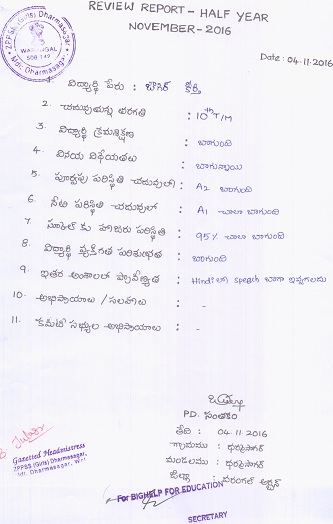 REVIEW REPORT - HALF YEAR
NOVEMBER - 2016
ZPPSS (Girls) Dharmasagar
WARANGAL
506 142
Mdl. Dharmasagar
Date : 04.11.2016
1. విద్యార్థి పేరు :
2. చదువుతున్న తరగతి : 10th T/M
3. విద్యార్థి క్రమశిక్షణ : బాగుంది
4. వినయ విధేయతలు : బాగున్నాయి
5. పూర్వపు పరిస్థితి చదువులో : A2 బాగుంది
6. నేటి పరిస్థితి చదువులో : A1 చాలా బాగుంది
7. స్కూల్ కు హాజరు పరిస్థితి : 95% చాలా బాగుంది
8. విద్యార్థి వ్యక్తిగత పరిశుభ్రత : బాగుంది
9. ఇతర అంశాలలో ప్రావీణ్యత : Hindi లో speach బాగా ఇవ్వగలదు
10. అభిప్రాయాలు / సలహాలు : -
11. కమిటి సభ్యుల అభిప్రాయాలు : -
P.D. సంతకం
తేది : 04.11.2016
గ్రామము : ధర్మసాగర్
మండలము : ధర్మసాగర్
జిల్లా : వరంగల్ అర్బన్
Gazetted Headmistress
ZPPSS (Girls) Dharmasagar,
Mdl. Dharmasagar, Wgl
For BIGHELP FOR EDUCATION
SECRETARY